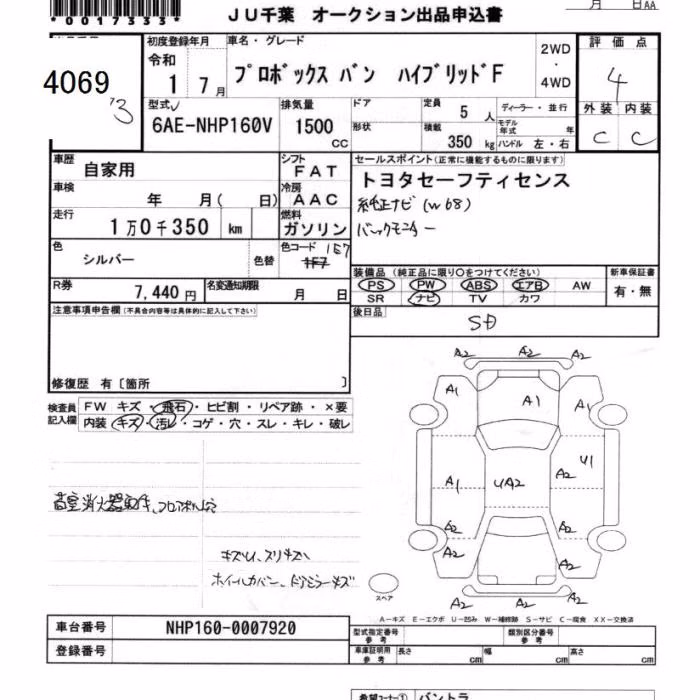 *0017333*
月 日AA
JU千葉 オークション出品申込書
4069
3
初度登録年月
令和
1 7月
車名・グレード
プロボックス バン ハイブリッドF
2WD
・
4WD
評価点
4
外装 内装
C C
型式
6AE-NHP160V
排気量
1500
CC
ドア
形状
定員 5 人
積載 350 kg
ディーラー・並行
モデル年式 年
ハンドル 左・右
車歴 自家用
車検 年 月( 日)
走行 1万0千350 km
色 シルバー 色替
シフト FAT
冷房 AAC
燃料 ガソリン
色コード 1E7
1F7
セールスポイント(正常に機能するものに限ります)
トヨタセーフティセンス
純正ナビ(W68)
バックモニター
R券 7,440円
名変通知期限 月 日
装備品(純正品に限り○をつけてください)
PS PW ABS エアB AW
SR ナビ TV カワ
新車保証書
有・無
注意事項申告欄(不具合内容等は具体的に記入して下さい)
後日品
SD
修復歴 有〔箇所 〕
検査員記入欄
FW キズ・飛石・ヒビ割・リペア跡・×要
内装 キズ・汚レ・コゲ・穴・スレ・キレ・破レ
A2 A2 A2
A1 A1 A1
A1 UA2 A2 U1
A2 A2
A2 A2
A2 A2 A2
スペア
キズU、スリキズハ
ホイールカバー、ドアミラーキズ
A-キズ E-エクボ U-凹み W-補修跡 S-サビ C-腐食 XX-交換済
車台番号 NHP160-0007920
登録番号
型式指定番号 参考
類別区分番号 参考
車庫証明用 参考 長さ cm 幅 cm 高さ cm
希望コーナー① バントラ